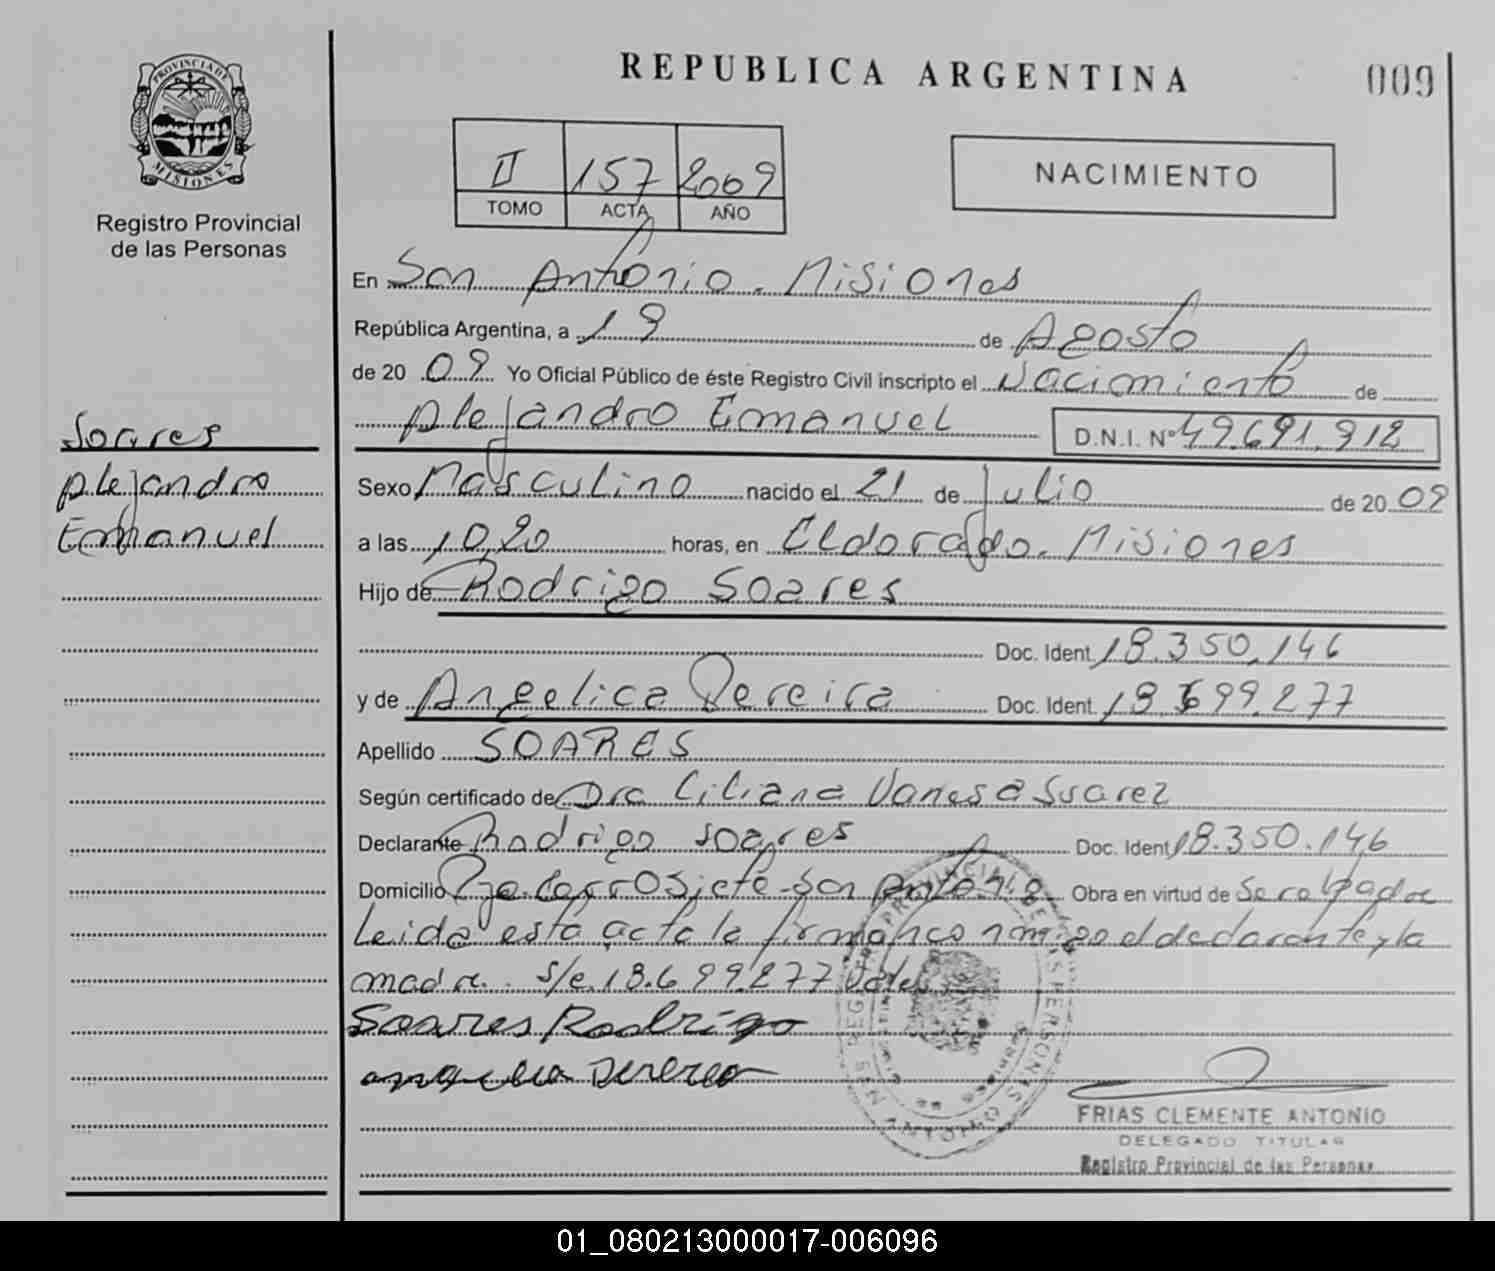 PROVINCIA DE
MISIONES
Registro Provincial
de las Personas
REPUBLICA ARGENTINA
009
II 157 2009
TOMO ACTA AÑO
NACIMIENTO
En San Antonio - Misiones
República Argentina, a 19 de Agosto
de 20 09 Yo Oficial Público de éste Registro Civil inscripto el Nacimiento de
Alejandro Emanuel D.N.I. Nº 49.691.912
Soares
Alejandro
Emanuel
Sexo Masculino nacido el 21 de Julio de 20 09
a las 10,20 horas, en Eldorado - Misiones
Hijo de Rodrigo Soares
Doc. Ident. 18.350.146
y de Angelica Pereira Doc. Ident. 18.699.277
Apellido SOARES
Según certificado de Dra Liliana Vanesa Suarez
Declarante Rodrigo Soares Doc. Ident. 18.350.146
Domicilio Pje. Carrosjefe - San Antonio Obra en virtud de
Leida esta acta la firman conmigo el declarante y la
madre. s/e. 18.699.277 Vale
Soares Rodrigo
FRIAS CLEMENTE ANTONIO
DELEGADO TITULAR
Registro Provincial de las Personas
01_080213000017-006096